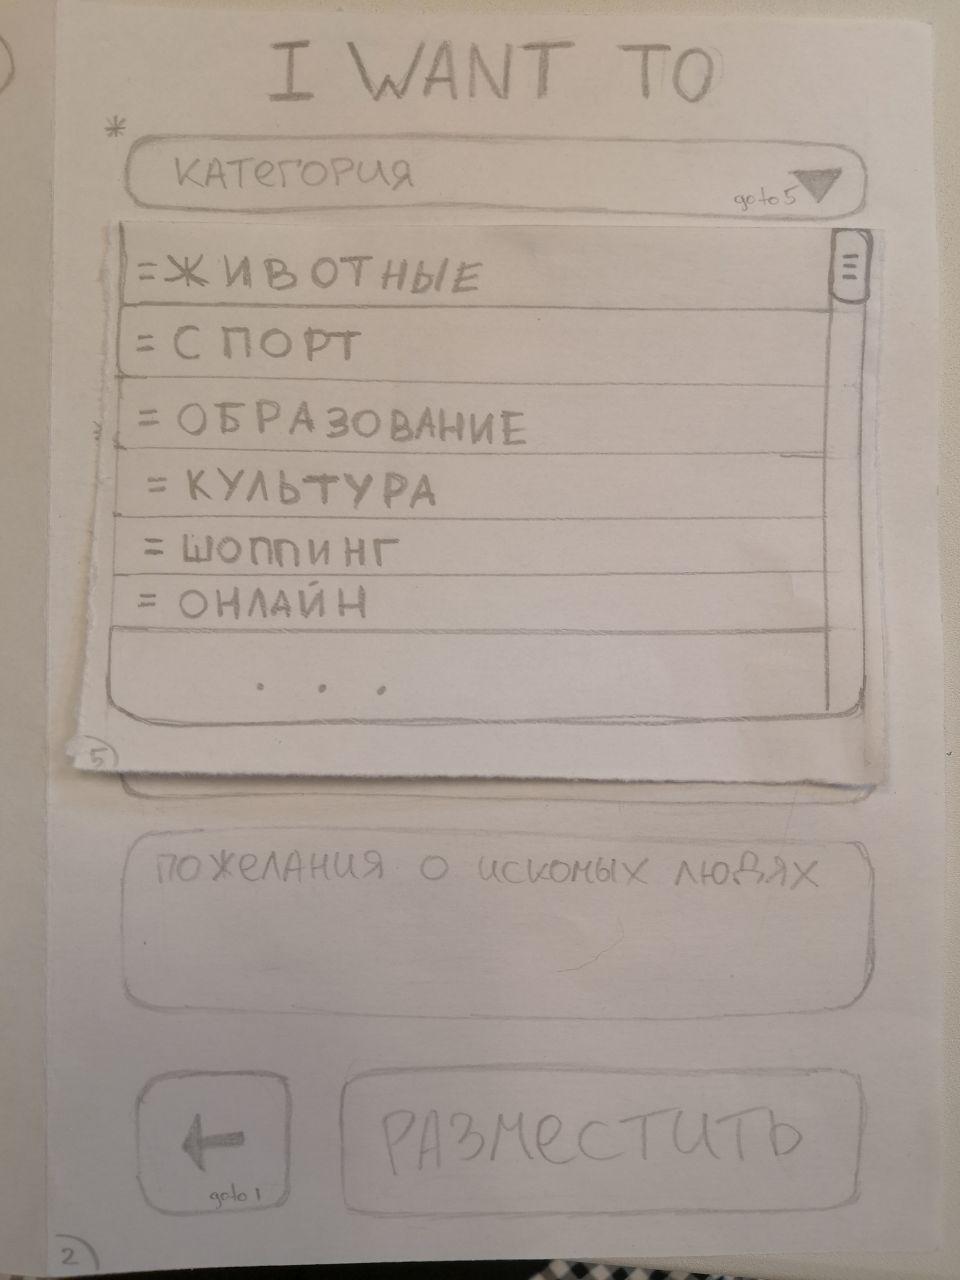 I WANT TO
*
КАТЕГОРИЯ
goto 5
= ЖИВОТНЫЕ
= СПОРТ
= ОБРАЗОВАНИЕ
= КУЛЬТУРА
= ШОППИНГ
= ОНЛАЙН
. . .
5
ПОЖЕЛАНИЯ О ИСКОМЫХ ЛЮДЯХ
goto 1
РАЗМЕСТИТЬ
2